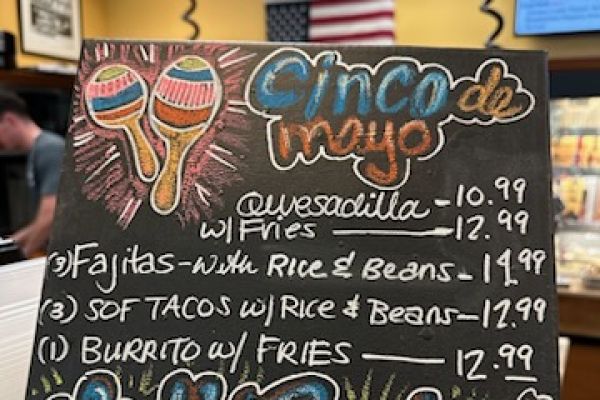 Cinco de
mayo
Quesadilla - 10.99
w/ Fries — 12.99
(3) Fajitas - with Rice & Beans - 14.99
(3) SOF TACOS w/ Rice & Beans — 12.99
(1) BURRITO w/ FRIES — 12.99